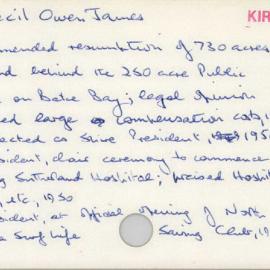 ecil Owen James
KIR
mended resumption of 730 acres
nd behind the 250 acre Public
e on Botce Bay; legal opinion
ed large compensation costs, 1
ected as Shire President, 195
sident, chair ceremony to commence
g Sutherland Hospital; praised Hospit
, etc, 1950
sident, at official opening of North
a Surf Life Saving Club, 19